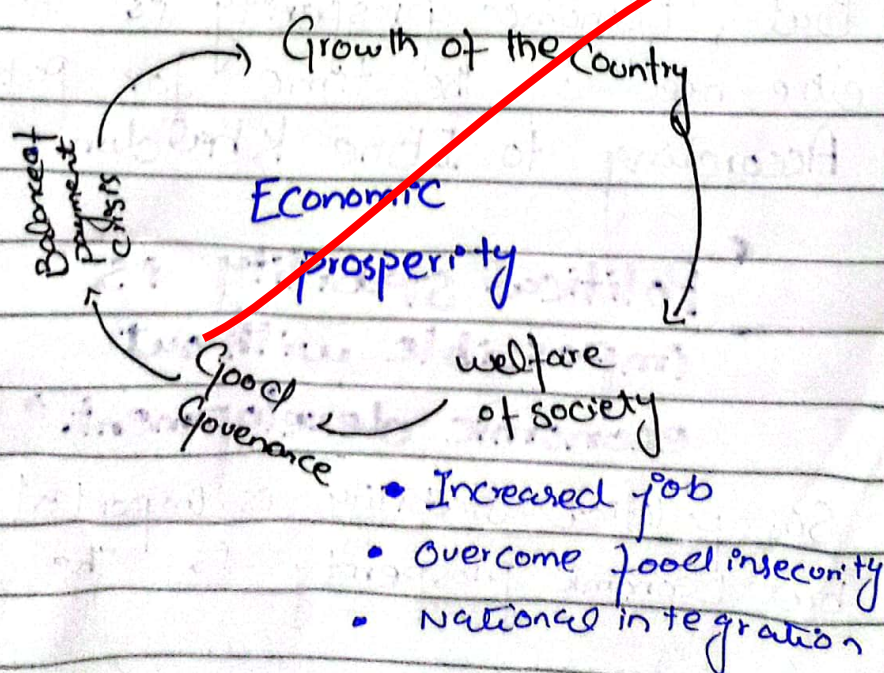 Growth of the Country
Balance of
payment
crisis
Economic
prosperity
Good
Govenance
welfare
of society
• Increased job
• Overcome food insecurity
• National integration